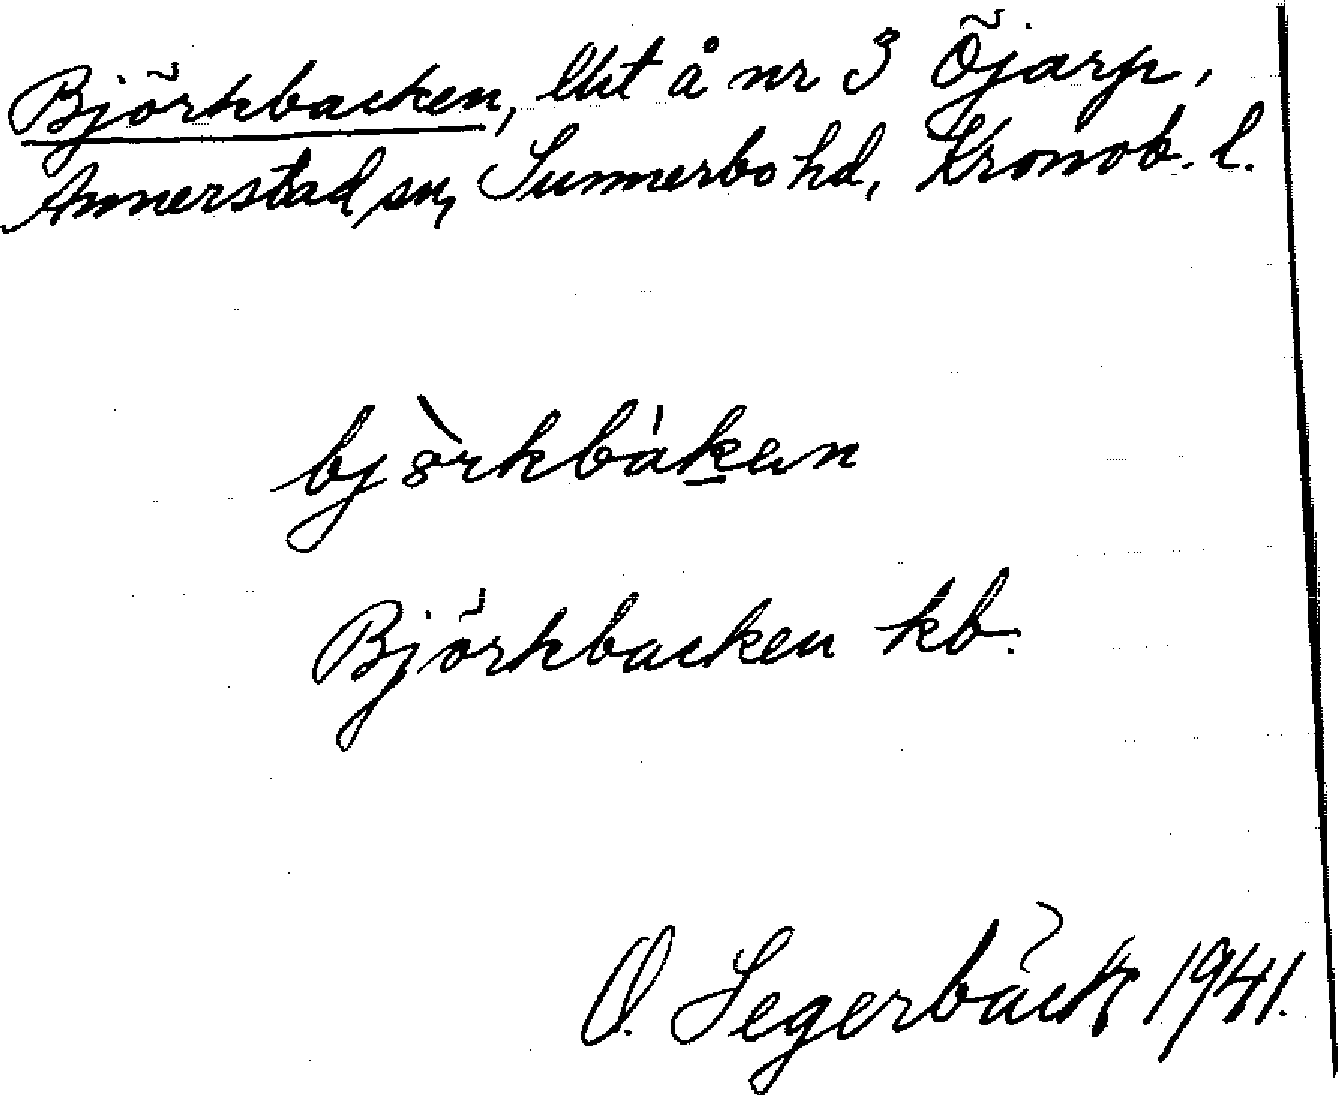 Björkbacken, lht å nr 3 Öjarp,
Annerstad sn, Sunnerbo hd, Kronob. l.
bjòrkbákan
Björkbacken kb.
O. Segerbäck 1941.